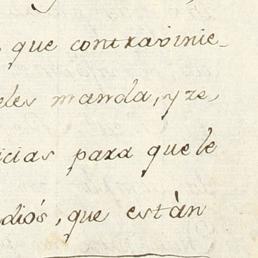 que contravinie-
les manda, y re,
icias para que le
dios, que estàn